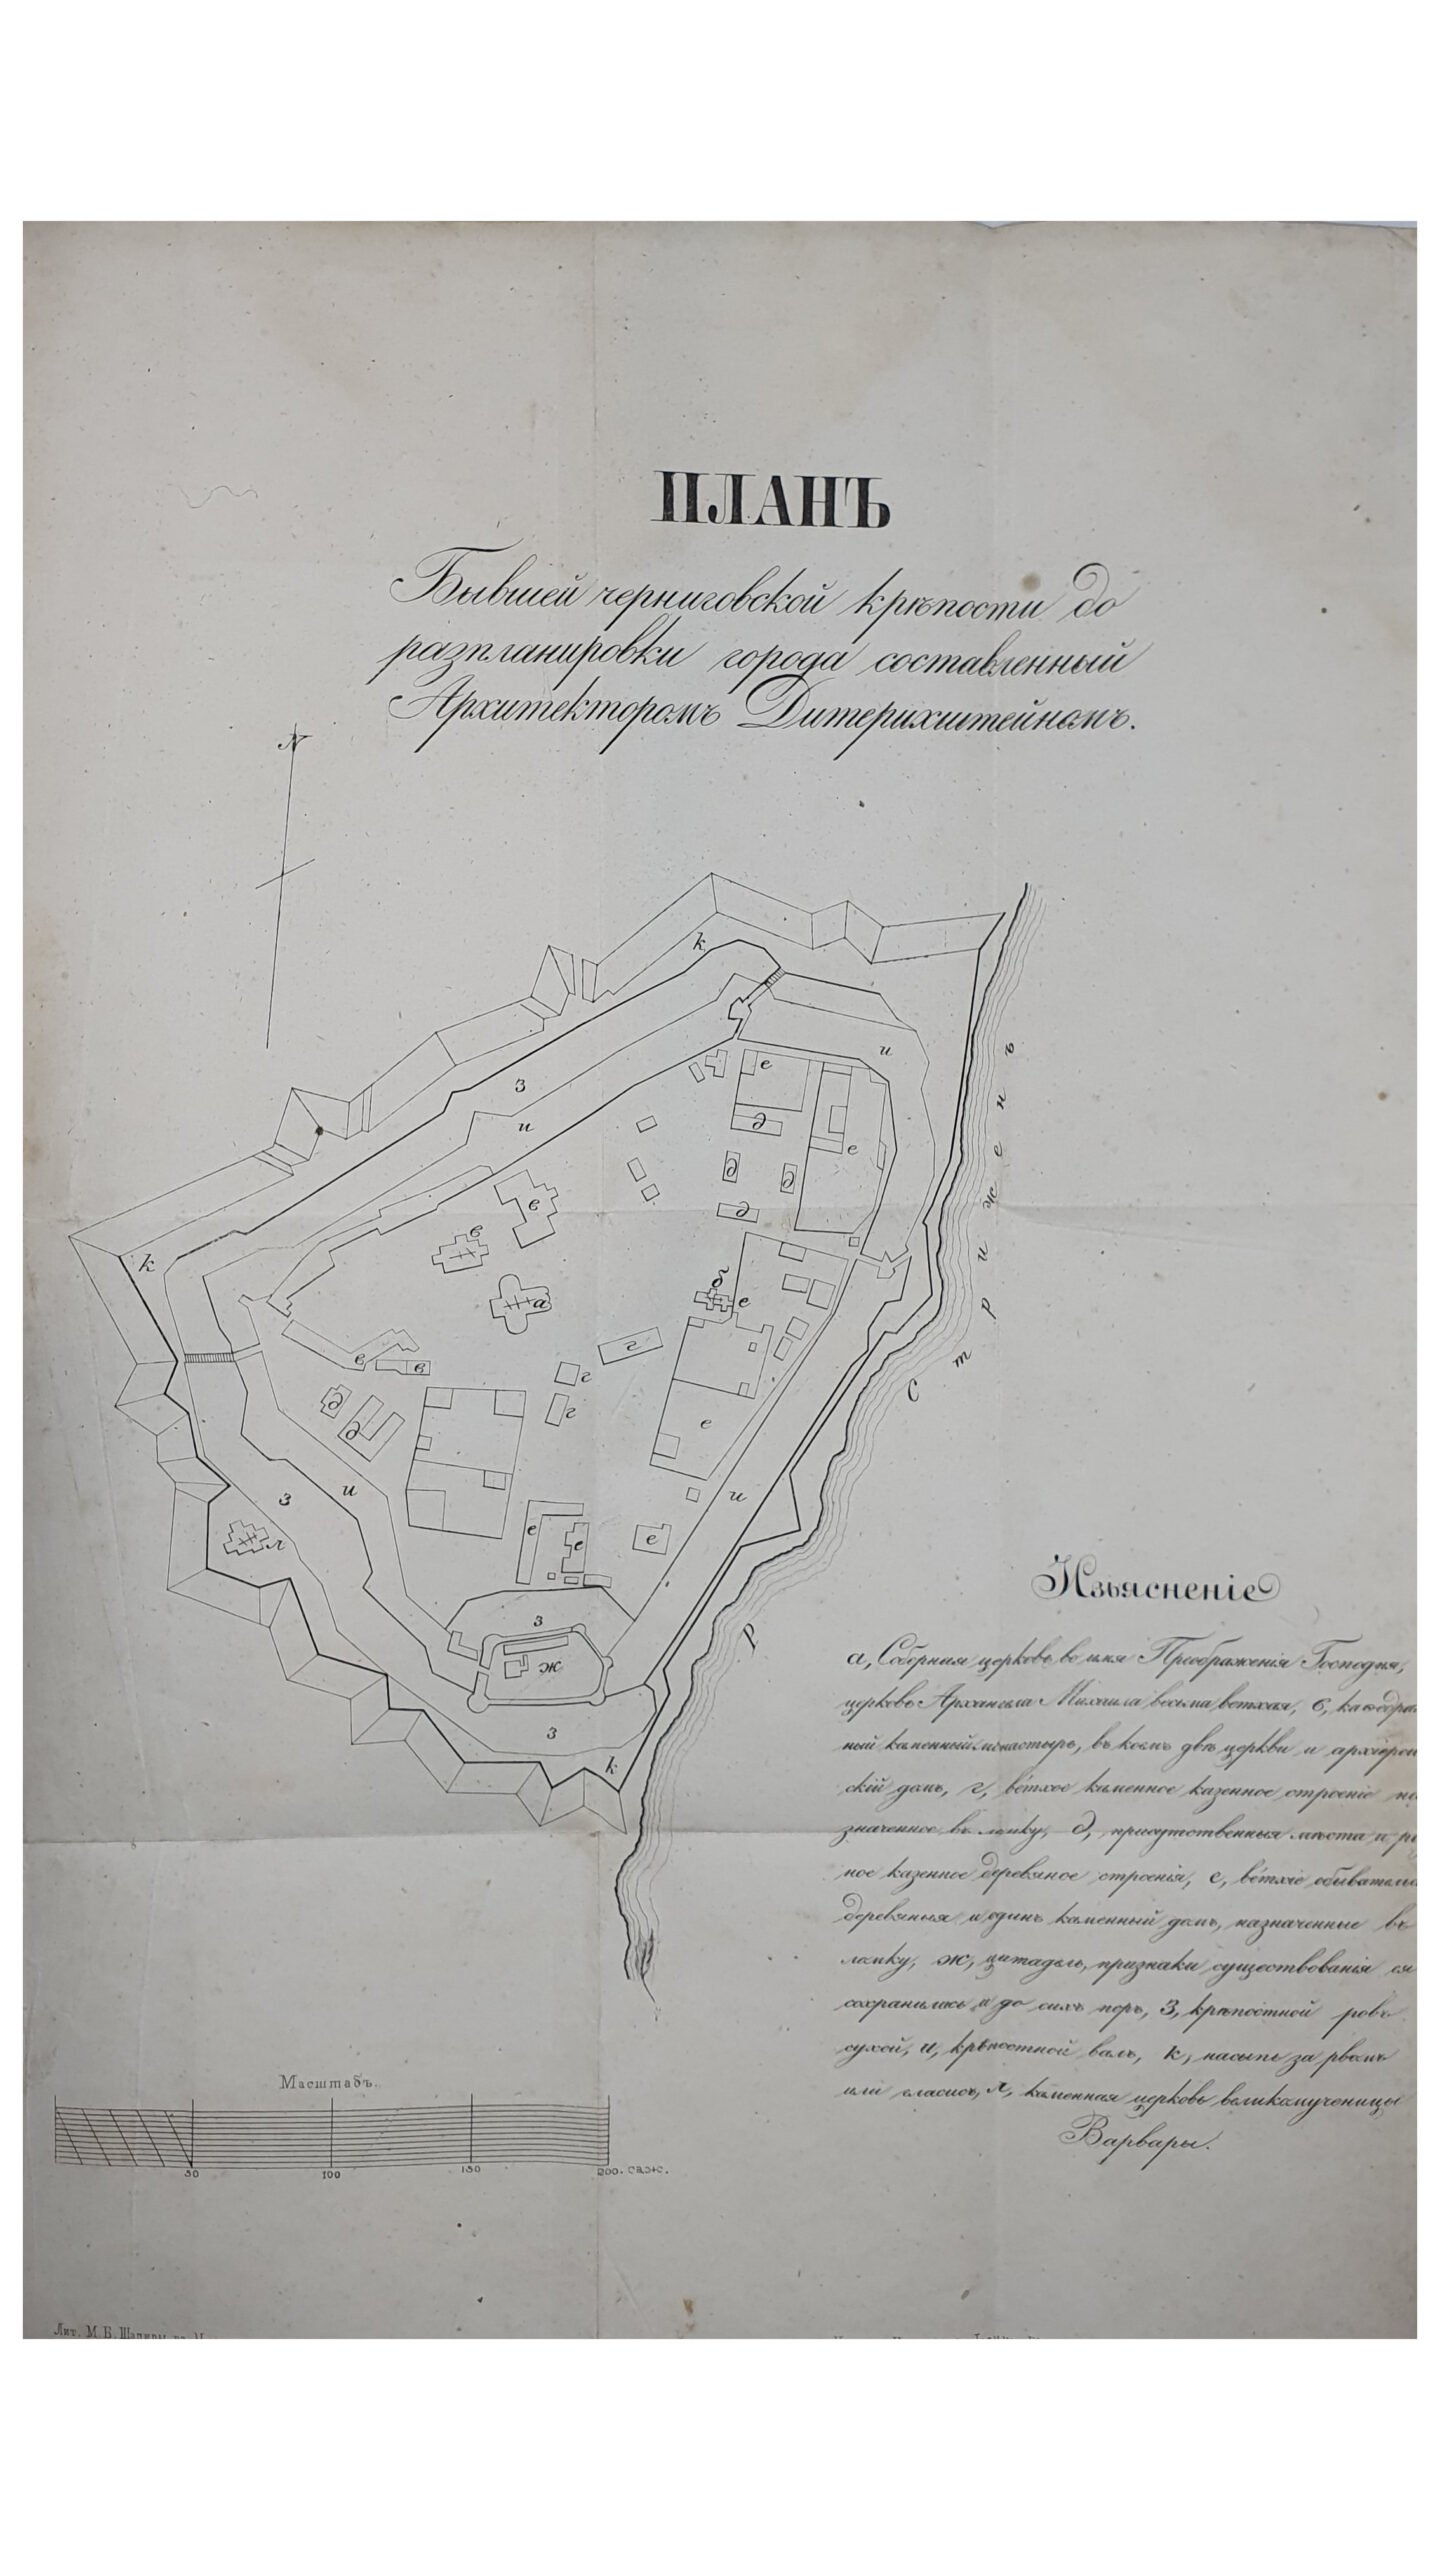 ПЛАНЪ
Бывшей черниговской крѣпости до
разпланировки города составленный
Архитекторомъ Дитерихштейномъ.
N
k
з
и
и
k
е
е
д
д
д
д
в
в
а
б
е
г
г
г
в
в
д
д
е
и
з
и
л
е
е
е
з
ж
з
k
Р. Стрижень
Изъясненіе
а, Соборная церковь во имя Преображенія Господня,
церковь Архангела Михаила весьма ветхая, в, каѳедра
ный каменный монастырь, въ коемъ двѣ церкви и архіерей
скій домъ, г, ветхое каменное казенное строеніе на
значенное въ ломку, д, присутственныя мѣста и
ное казенное деревяное строенія, е, ветхіе обывател
деревяныя и одинъ каменный домъ, назначенные въ
ломку, ж, цитадель, признаки существованія ея
сохранились и до сихъ поръ, З, крѣпостной ровъ
сухой, и, крѣпостной валъ, к, насыпь за рвомъ
или гласисъ, л, каменная церковь великомученицы
Варвары.
Масштабъ.
50 100 150 200. саж.
Лит. М. Б.